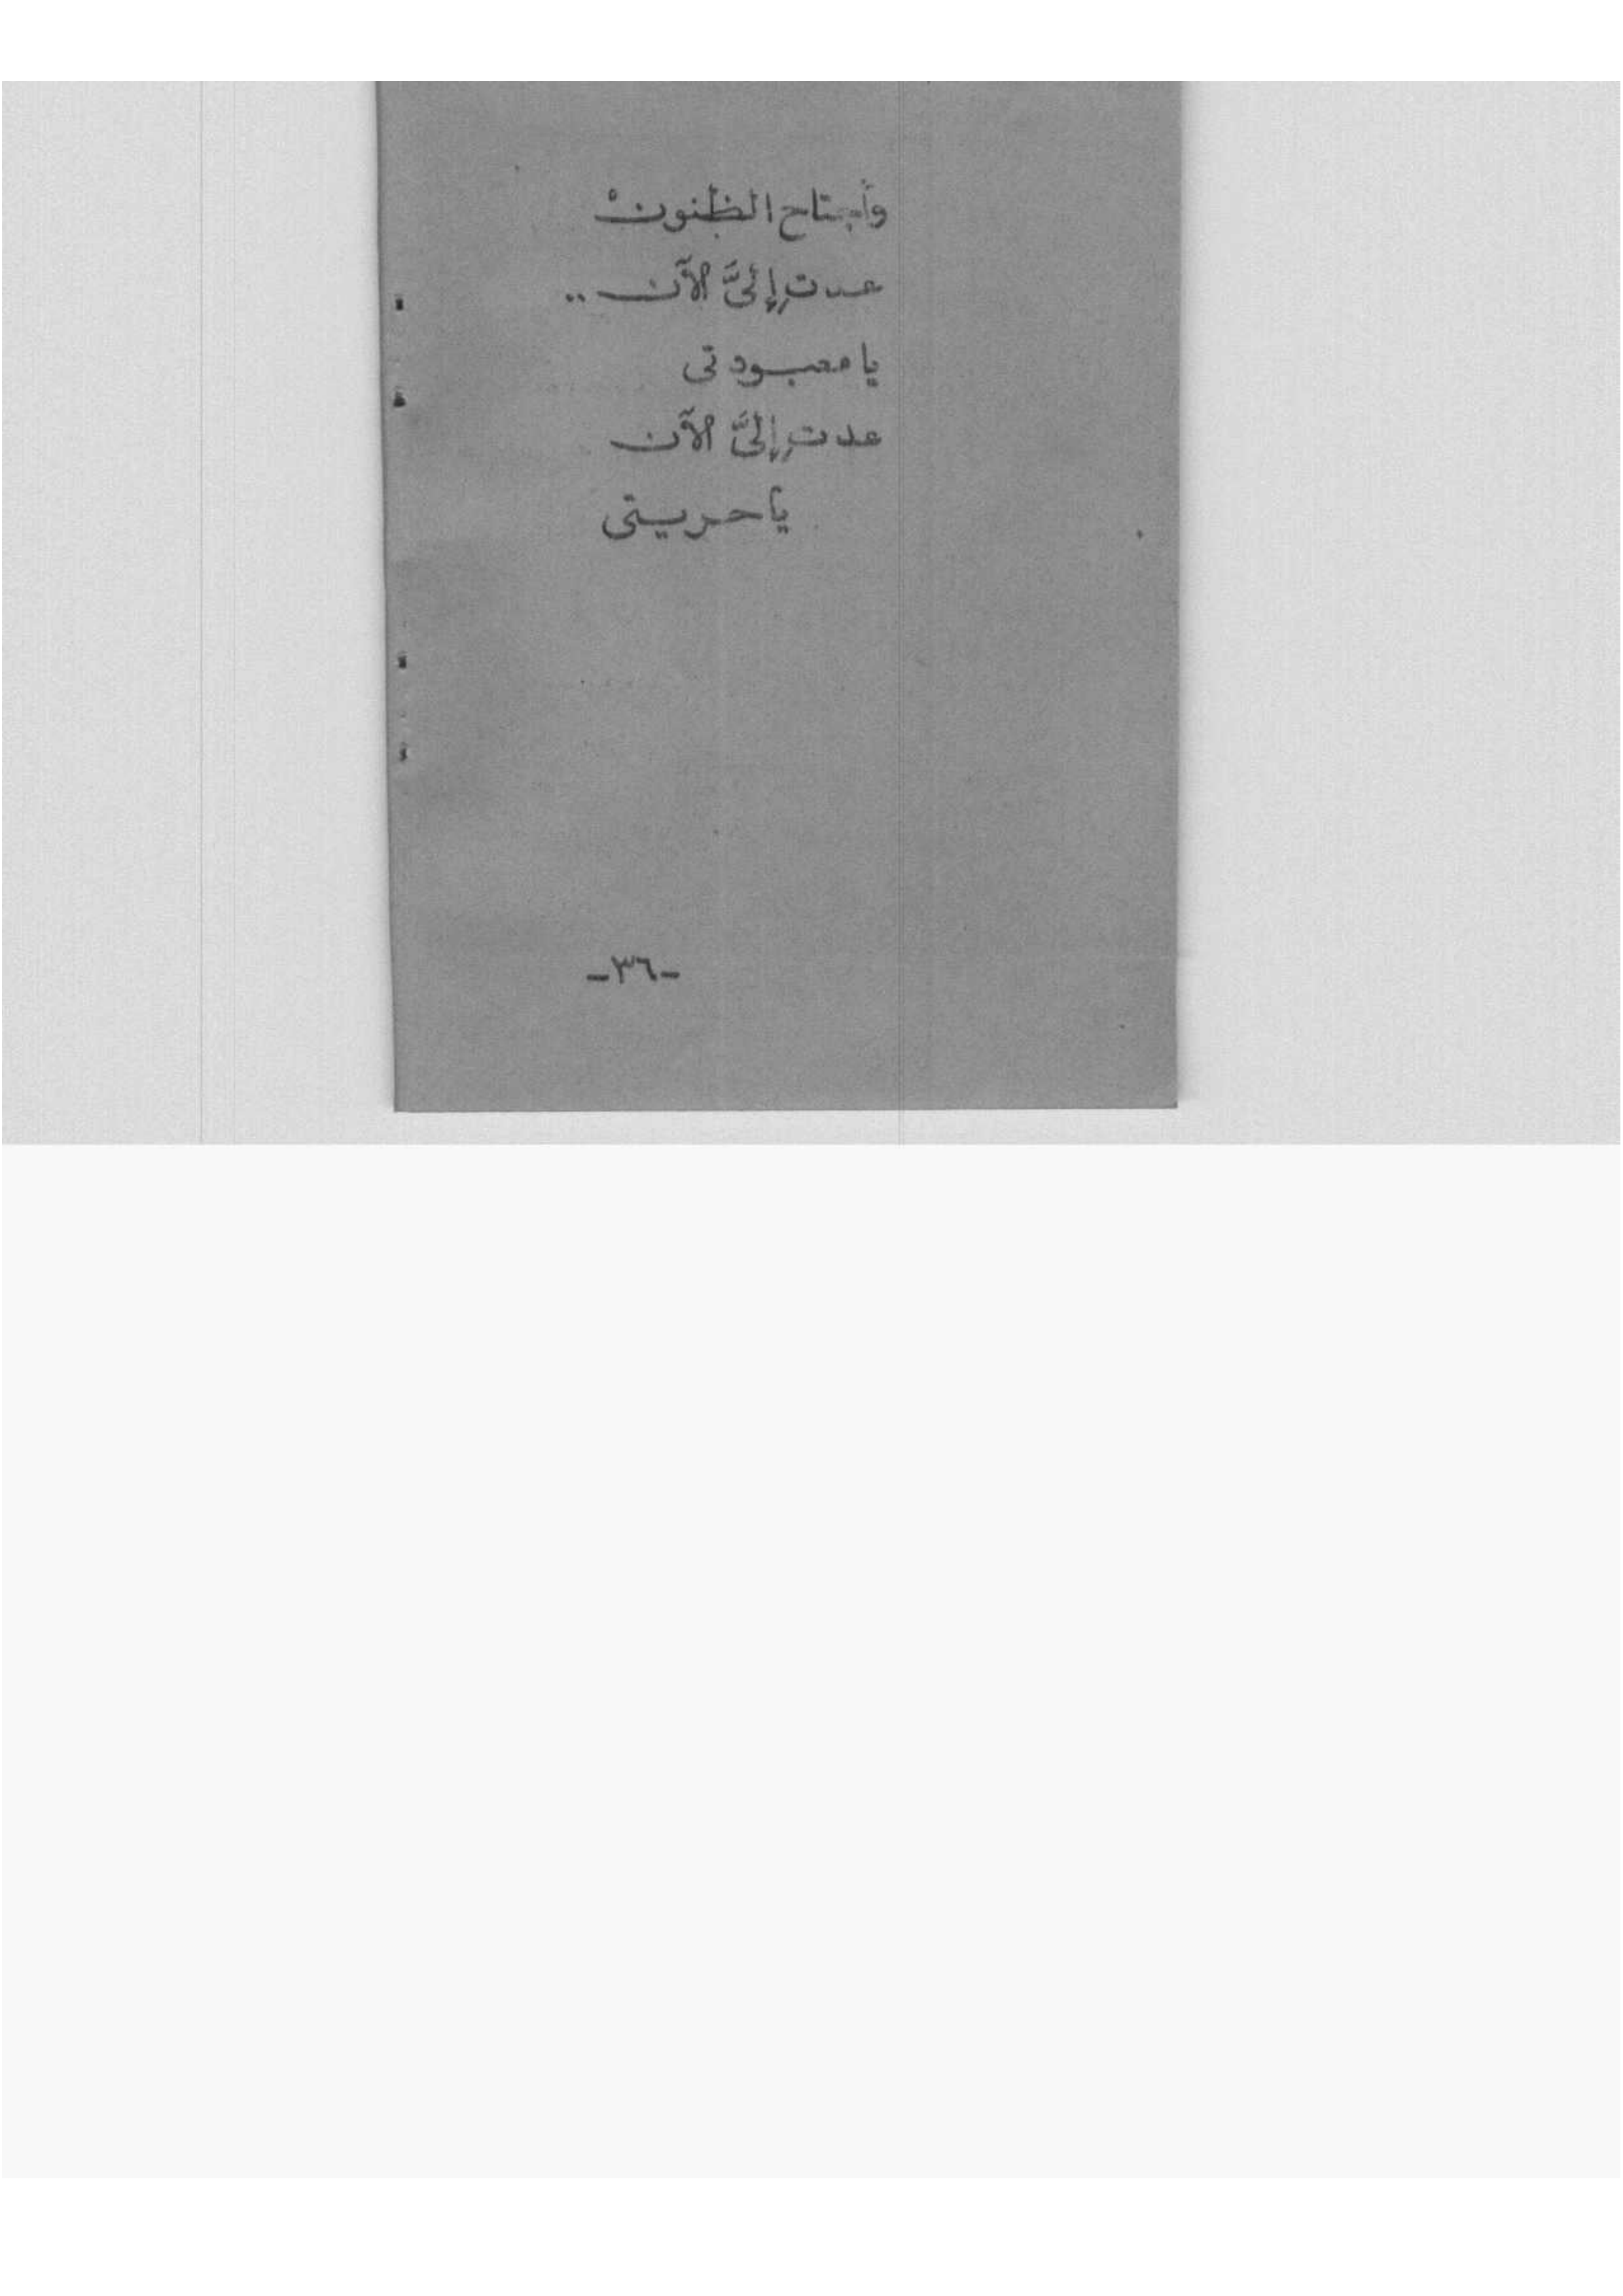 وأجتاح الظنونْ
عدتِ إليَّ الآن ..
يا معبودتي
عدتِ إليَّ الآن
يا حريتي
-٣٦-